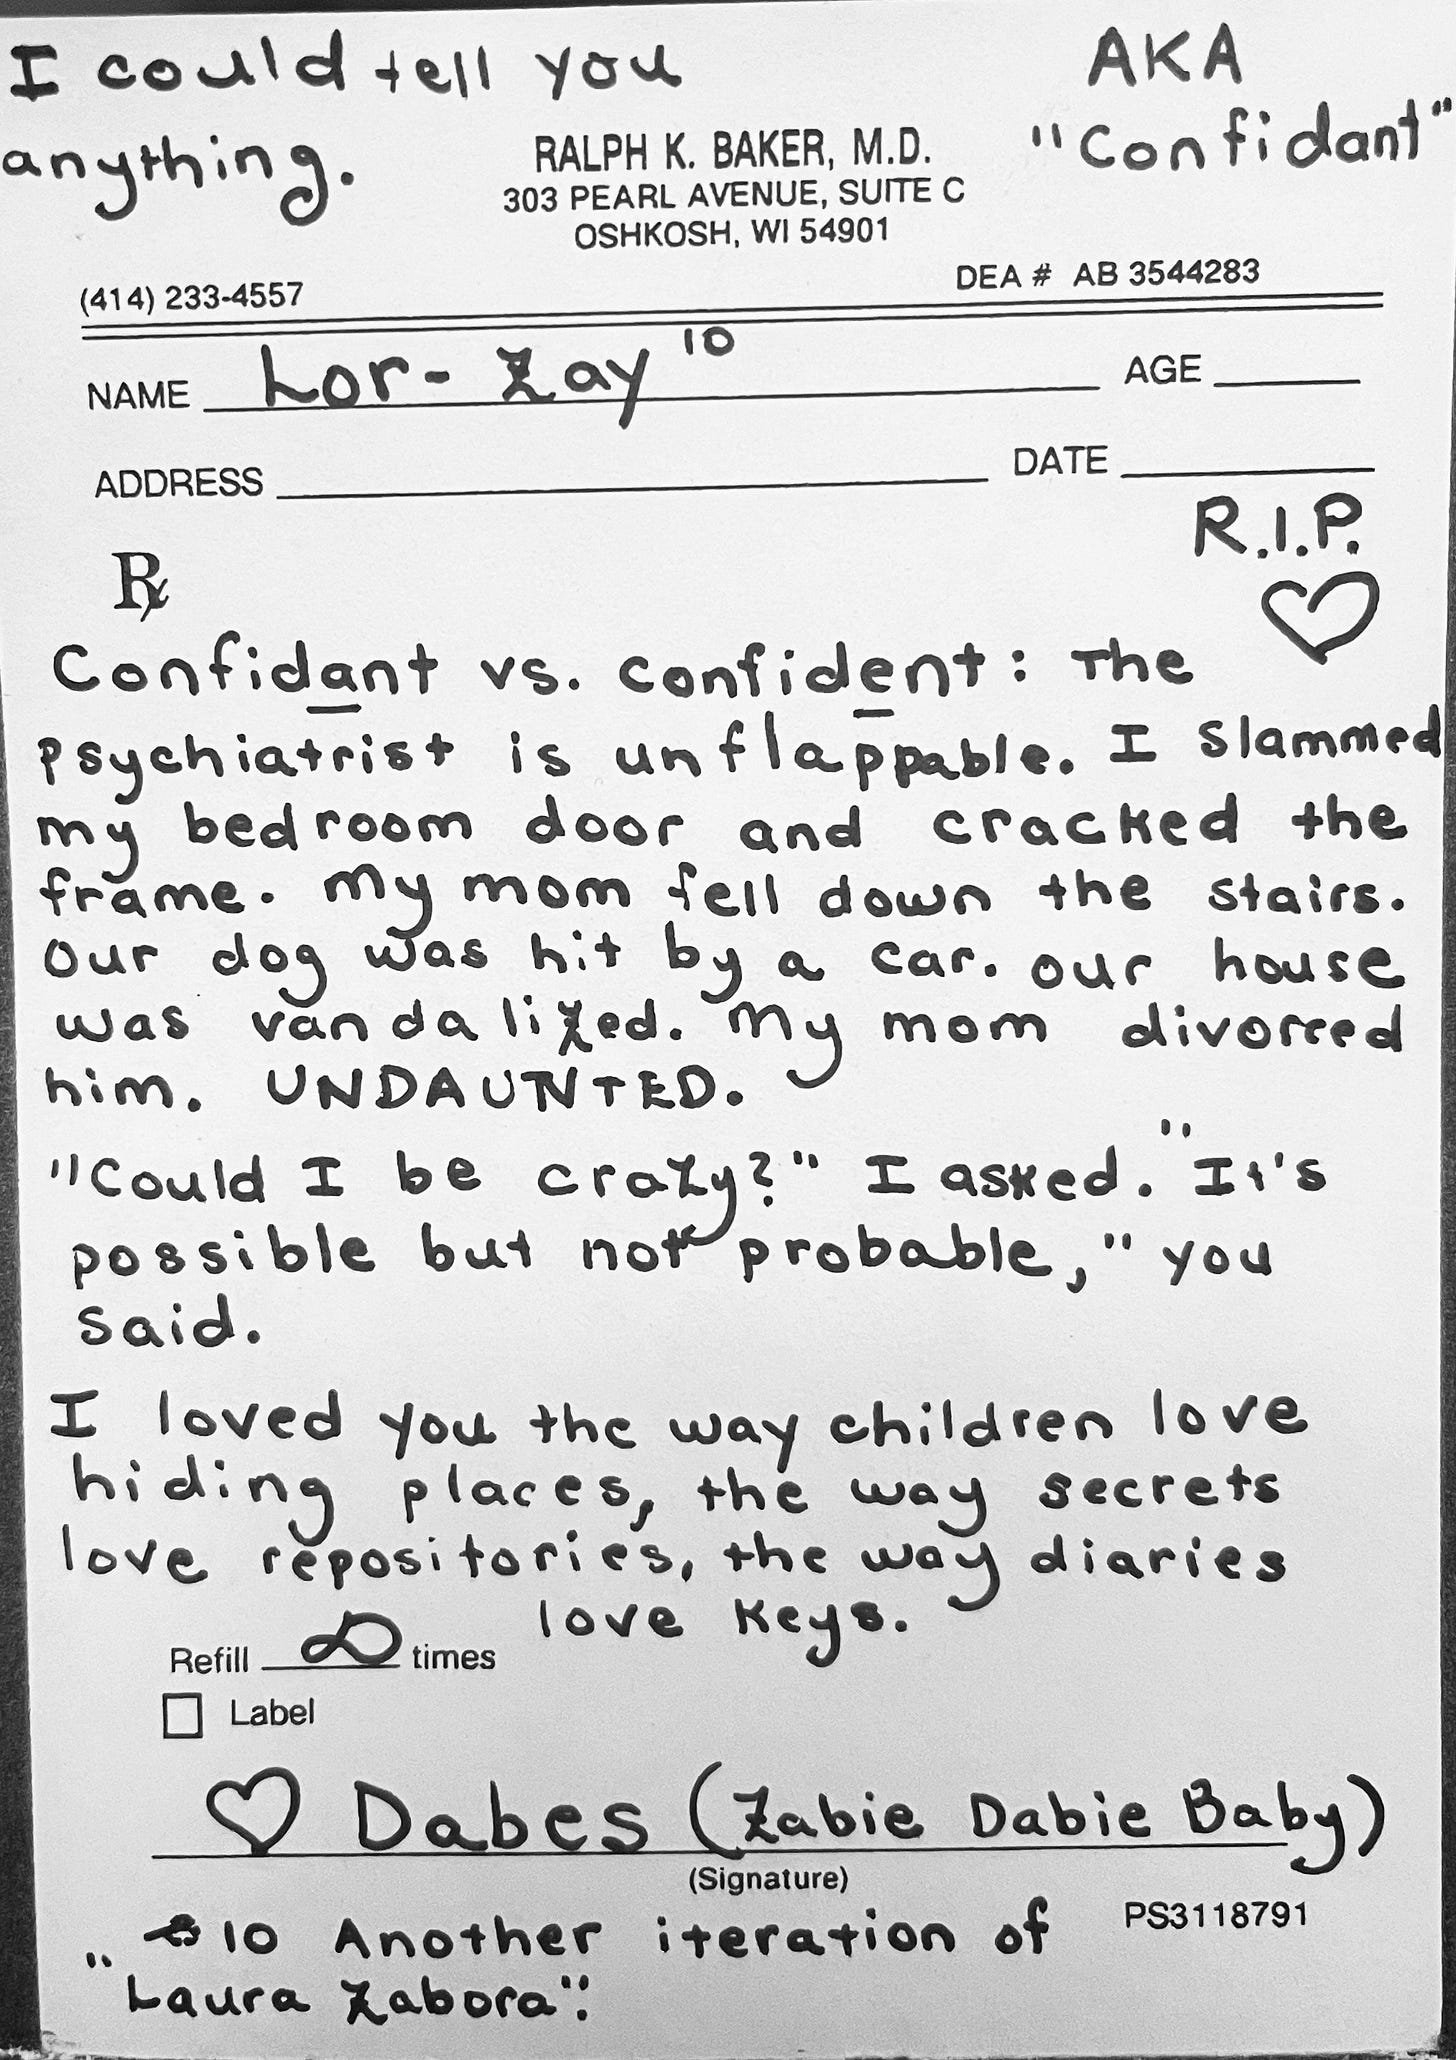 I could tell you
anything.
AKA
"Confidant"
RALPH K. BAKER, M.D.
303 PEARL AVENUE, SUITE C
OSHKOSH, WI 54901
(414) 233-4557
DEA # AB 3544283
NAME Lor-Zay 10
AGE
ADDRESS
DATE
R.I.P.
Rx
Confidant vs. confident: The
psychiatrist is unflappable. I slammed
my bedroom door and cracked the
frame. My mom fell down the stairs.
Our dog was hit by a car. Our house
was vandalized. My mom divorced
him. UNDAUNTED.
"Could I be crazy?" I asked. "It's
possible but not probable," you
said.
I loved you the way children love
hiding places, the way secrets
love repositories, the way diaries
love keys.
Refill ∞ times
Label
♡ Dabes (Zabie Dabie Baby)
(Signature)
PS3118791
10 Another iteration of
"Laura Zabora".